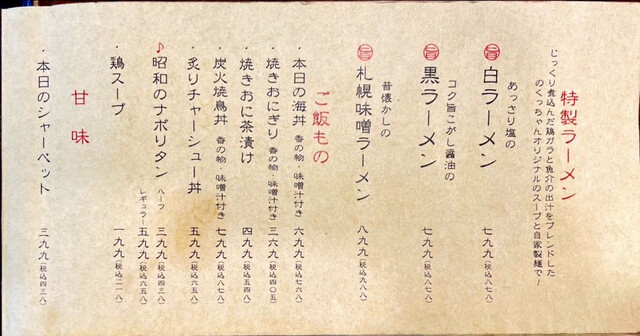 特製ラーメン
じっくり煮込んだ鶏ガラと魚介の出汁をブレンドした
のくっちゃんオリジナルのスープと自家製麺で!
あっさり塩の
白ラーメン 七九九(税込八七八)
コク旨こがし醤油の
黒ラーメン 七九九(税込八七八)
昔懐かしの
札幌味噌ラーメン 八九九(税込九八八)
ご飯もの
・本日の海丼 香の物・味噌汁付き 六九九(税込七六八)
・焼きおにぎり 香の物・味噌汁付き 三六九(税込四〇五)
・焼きおに茶漬け 四九九(税込五四八)
・炭火焼鳥丼 香の物・味噌汁付き 七九九(税込八七八)
・炙りチャーシュー丼 五九九(税込六五八)
♪昭和のナポリタン ハーフ 三九九(税込四三八)
レギュラー 五九九(税込六五八)
・鶏スープ 一九九(税込二一八)
甘味
・本日のシャーベット 三九九(税込四三八)